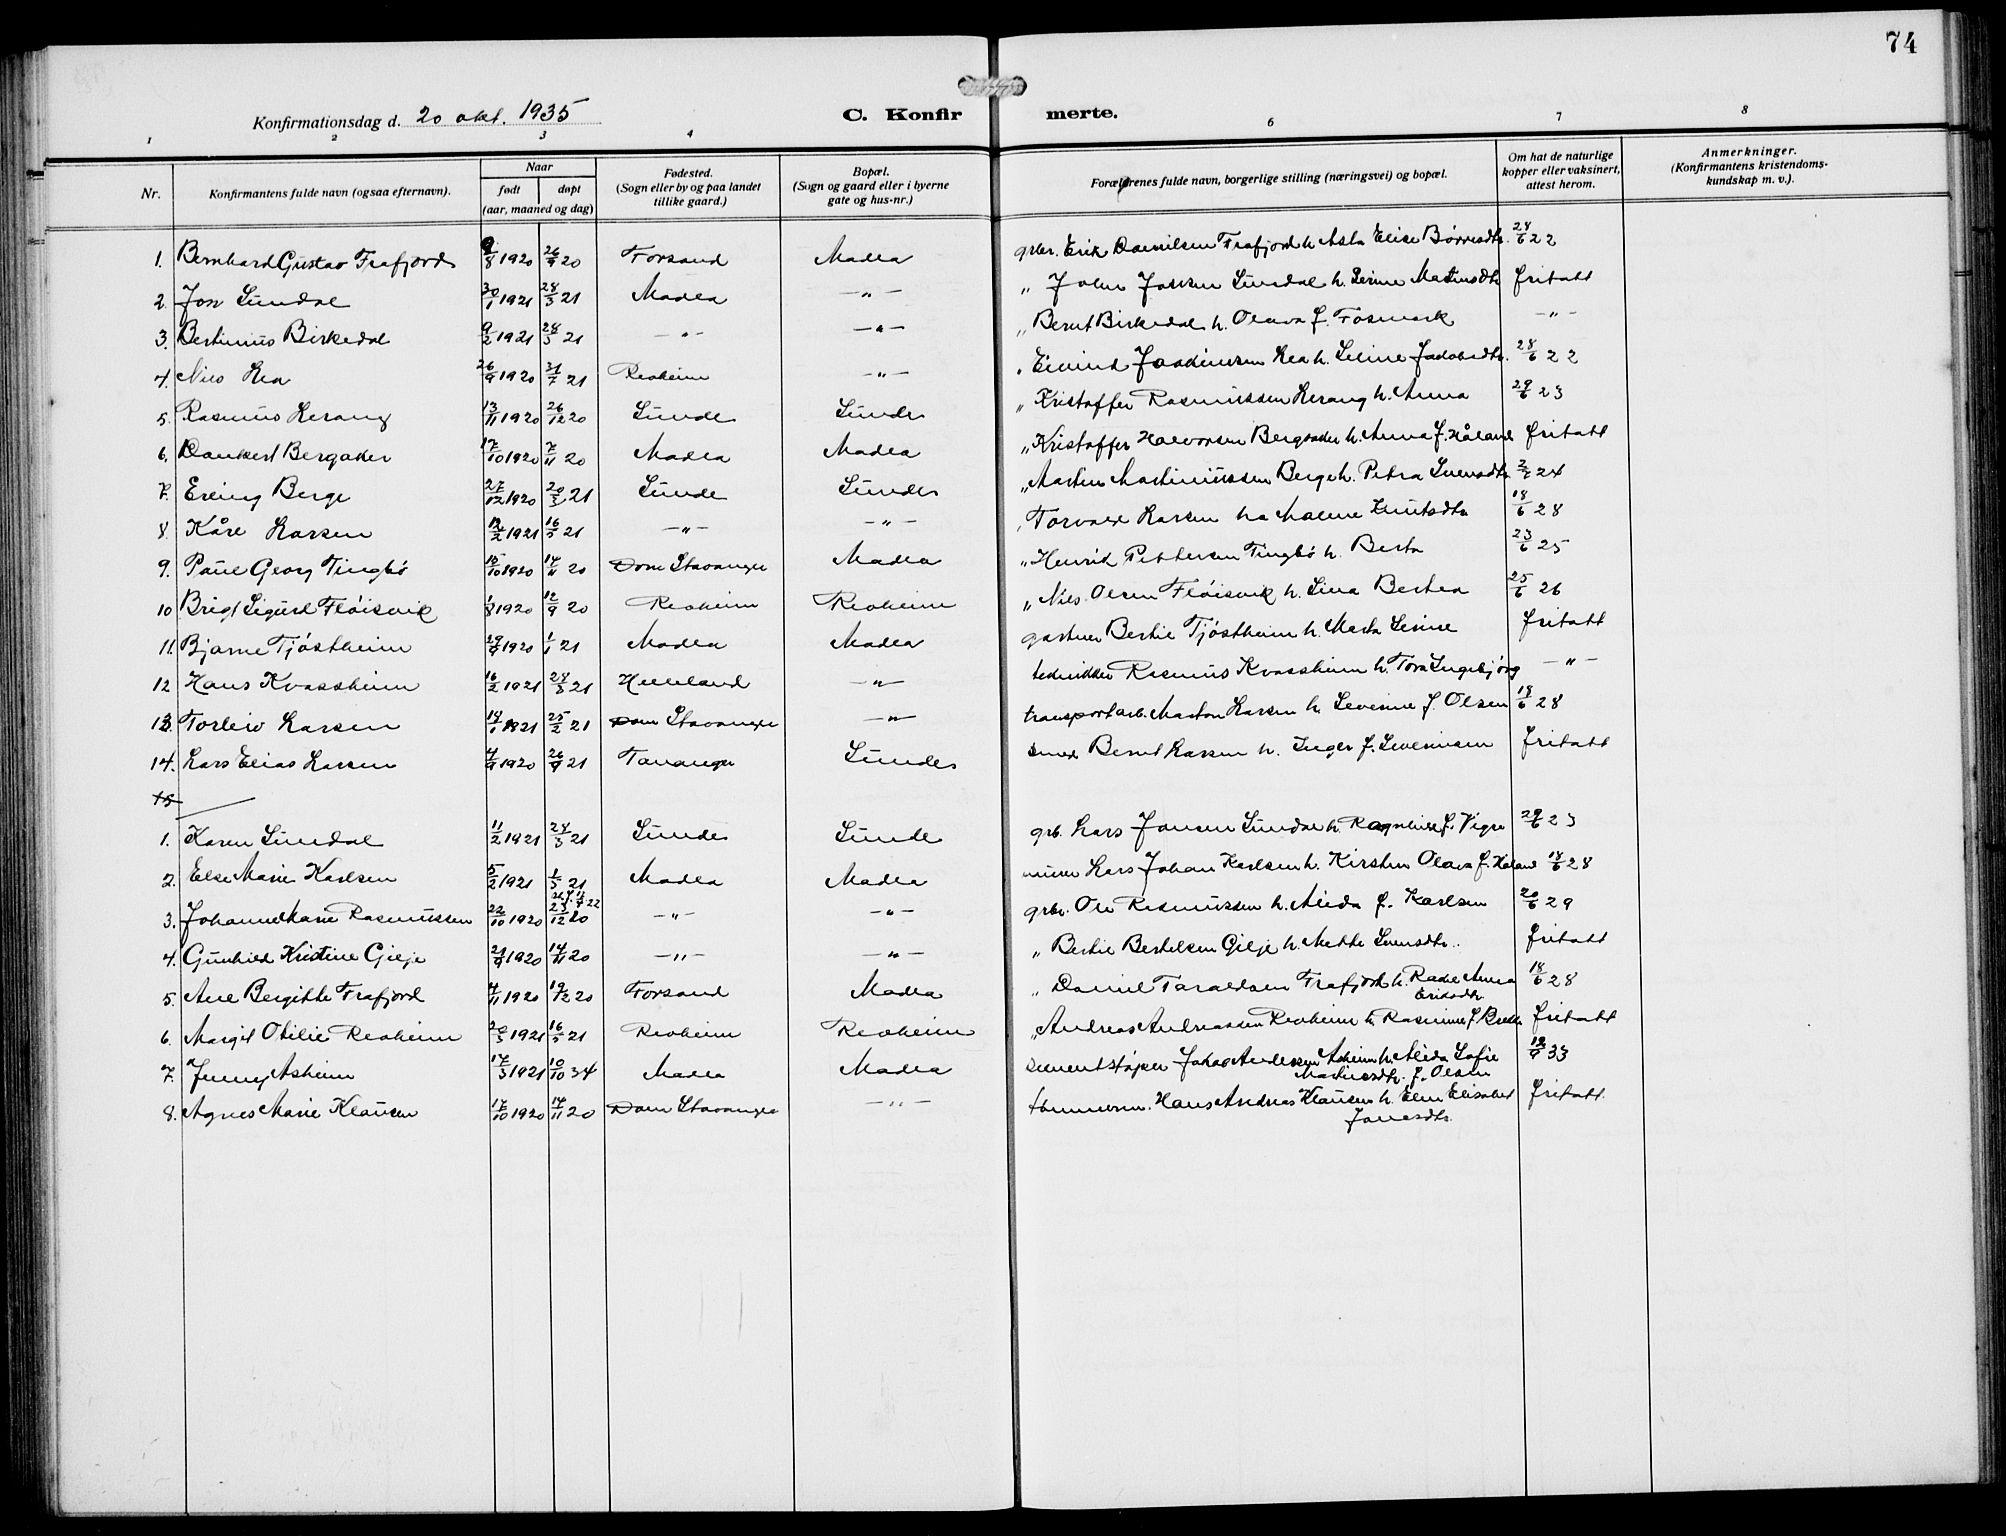 74
Konfirmationsdag d. 20 okt. 1935
C. Konfirmerte.
1 2 3 4 6 7 8
Nr. Konfirmantens fulde navn (ogsaa efternavn). Naar født døpt (aar, maaned og dag) Fødested. (Sogn eller by og paa landet tillike gaard.) Bopæl. (Sogn og gaard eller i byerne gate og hus-nr.) Forældrenes fulde navn, borgerlige stilling (næringsvei) og bopæl. Om hat de naturlige kopper eller vaksinert, attest herom. Anmerkninger. (Konfirmantens kristendomskundskap m. v.).
1. Bernhard Gustav Frafjord 9/8 1920 26/9 20 Forsand Madla grbr. Erik Danielsen Frafjord h. Asta Elise Børresdtr. 24/6 22
2. Jon Sundal 30/1 1921 28/3 21 Madla -"- " John Jonsen Sundal h. Serine Martinsdtr fritatt
3. Bertinius Birkedal 9/2 1921 28/3 21 -"- -"- " Bernt Birkedal h. Olava f. Fosmark -"-
4. Nils Rea 26/9 1920 31/7 21 Revheim -"- " Eivind Joakimsen Rea h. Seline Jakobsdtr. 28/6 22
5. Rasmus Lerang 13/11 1920 26/12 20 Sunde Sunde " Kristoffer Rasmussen Lerang h. Anna 29/6 23
6. Dankert Bergaker 17/10 1920 7/11 20 Madla Madla " Kristoffer Halvorsen Bergaker h. Anna f. Håland fritatt
7. Erling Berge 27/12 1920 20/3 21 Sunde Sunde " Martin Martiniussen Berge h. Petra Svensdtr 2/7 24
8. Kåre Larsen 12/2 1921 16/5 21 -"- -"- " Torvald Larsen h. Malene Knutsdtr 18/6 28
9. Paul Georg Tingbø 15/10 1920 14/11 20 Dom Stavanger Madla " Henrik Pettersen Tingbø h. Berta 23/6 25
10 Brigt Sigurd Fløisvik 1/8 1920 12/9 20 Revheim Revheim " Nils Olsen Fløisvik h. Lina Bertea 25/6 26
11. Bjarne Tjøstheim 29/9 1920 1/1 21 Madla Madla gartner Bertil Tjøstheim h. Marta Serine fritatt
12 Hans Kvassheim 16/2 1921 28/3 21 Helleland -"- Rasmus Kvassheim h. Tora Ingebjørg -"-
13. Torleiv Larsen 14/1 1921 25/2 21 Dom Stavanger -"- transportarb. Marton Larsen h. Severine f. Olsen 18/6 28
14. Lars Elias Larsen 4/9 1920 26/9 21 Tananger Sunde smed Bernt Larsen h. Inger f. Severinsen fritatt
15
1. Karen Sundal 11/2 1921 24/3 21 Sunde Sunde grb. Lars Jonsen Sundal h. Ragnhild f. Vigre 29/6 23
2. Else Marie Karlsen 5/2 1921 1/5 21 Madla Madla murer Lars Johan Karlsen h. Kirsten Olava f. Håland 18/6 28
3. Johanne Marie Rasmussen 22/10 1920 23/12 20 -"- -"- grbr. Ole Rasmussen h. Alida f. Karlsen 20/6 29
4. Gunhild Kristine Gilje 21/9 1920 14/11 20 -"- -"- " Bertil Bertelsen Gilje h. Mette Svensdtr. fritatt
5. Ane Bergitte Frafjord 4/11 1920 19/12 20 Forsand Madla " Daniel Taraldsen Frafjord h. Rakel Anna Eriksdtr. 18/6 28
6. Margit Otilie Revheim 20/3 1921 16/5 21 Revheim Revheim " Andreas Andreassen Revheim h. Rasmine f. fritatt
7. Jenny Åsheim 17/3 1921 10/10 34 Madla Madla sementstøper Jakob Andersen Åsheim h. Alida Sofie Martinsdtr. f. Olsen 12/9 33
8. Agnes Marie Klausen 17/10 1920 14/11 20 Dom Stavanger -"- tømmerm. Hans Andreas Klausen h. Elen Elisabet Jonasdtr. fritatt